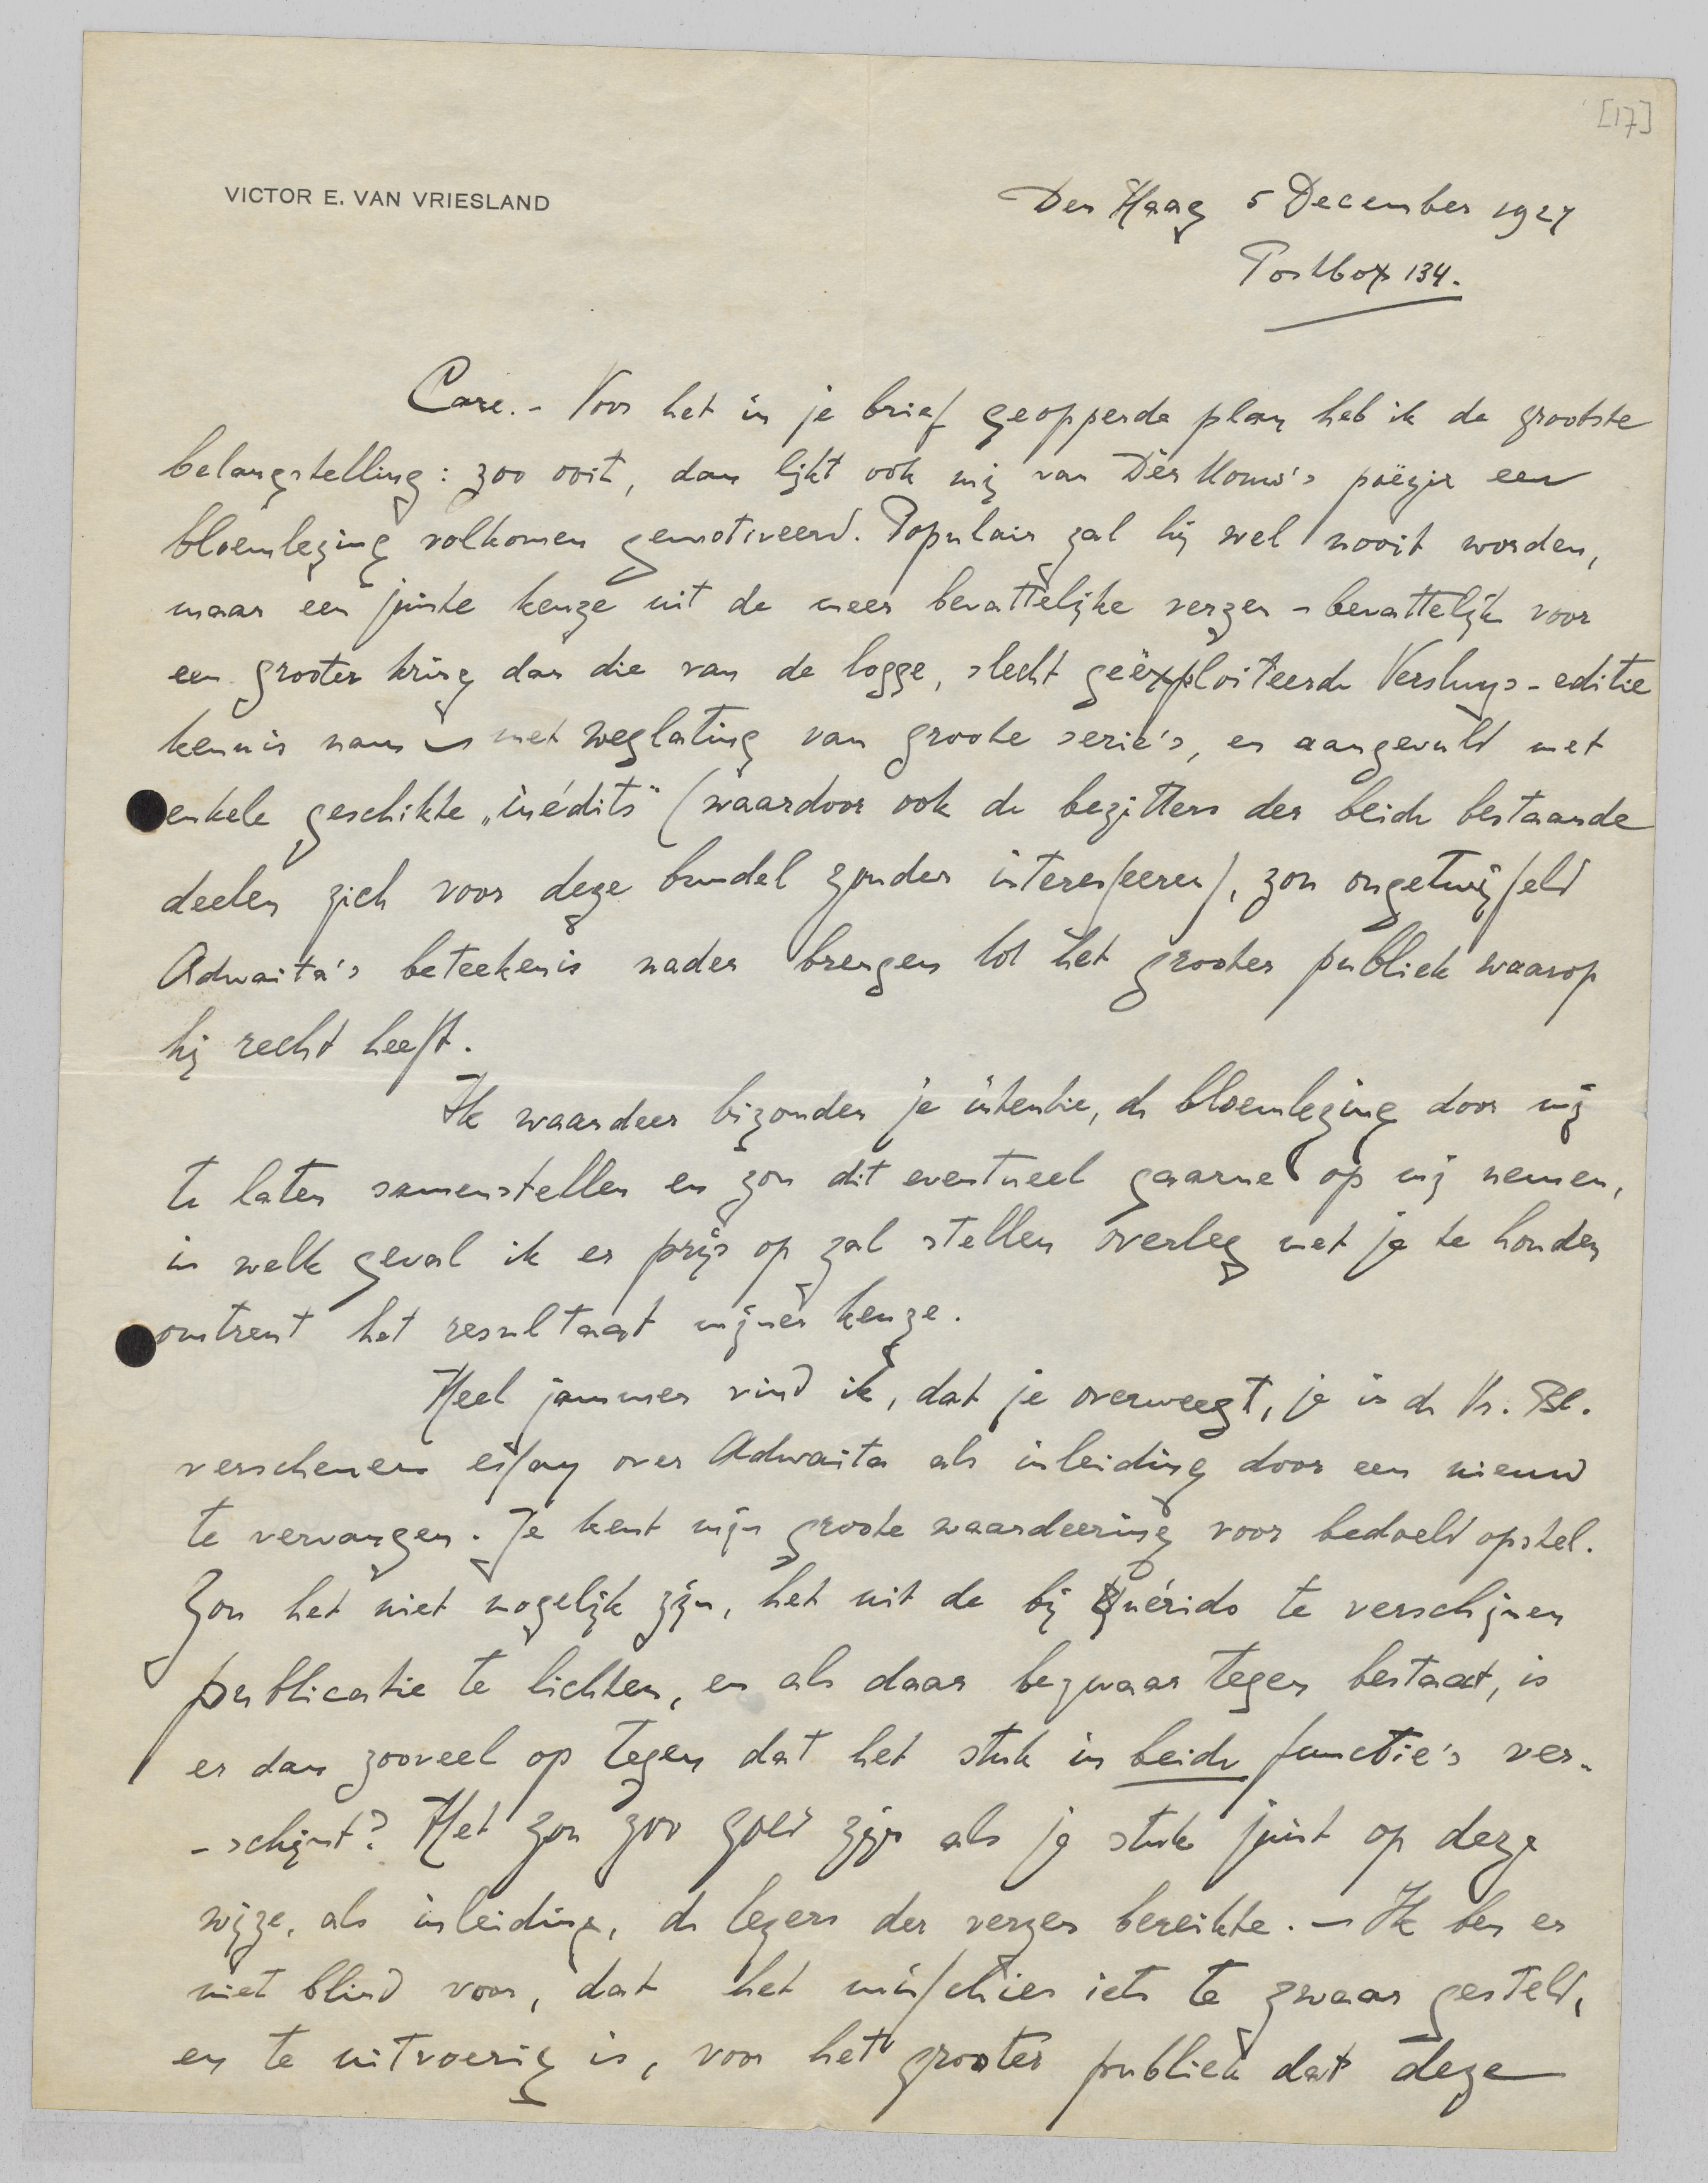 [17]
VICTOR E. VAN VRIESLAND
Den Haag 5 December 1927
Postbox 134.
Care. - Voor het in je brief geopperde plan heb ik de grootste
belangstelling: zoo ooit, dan lijkt ook mij van Dèr Mouw's poëzie een
bloemlezing volkomen gemotiveerd. Populair zal hij wel nooit worden,
maar een juiste keuze uit de meer bevattelijke verzen - bevattelijk voor
een grooter kring dan die van de logge, slecht geëxploiteerde Versluys-editie
kennis nam - met weglating van groote serie's, en aangevuld met
enkele geschikte „inédits" (waardoor ook de bezitters der beide bestaande
deelen zich voor deze bundel zouden interesseeren), zou ongetwijfeld
Adwaita's beteekenis nader brengen tot het grooter publiek waarop
hij recht heeft.
Ik waardeer bizonder je intentie, de bloemlezing door mij
te laten samenstellen en zou dit eventueel gaarne op mij nemen,
in welk geval ik er prijs op zal stellen overleg met je te houden
omtrent het resultaat mijner keuze.
Heel jammer vind ik, dat je overweegt, je in de Vr. Bl.
verschenen essay over Adwaita als inleiding door een nieuw
te vervangen. Je kent mijn groote waardeering voor bedoeld opstel.
Zou het niet mogelijk zijn, het uit de bij Quérido te verschijnen
publicatie te lichten, en als daar bezwaar tegen bestaat, is
er dan zooveel op tegen dat het stuk in beide functie's ver-
-schijnt? Het zou zoo goed zijn als je stuk juist op deze
wijze, als inleiding, de lezers der verzen bereikte. - Ik ben er
niet blind voor, dat het misschien iets te zwaar gesteld,
en te uitvoerig is, voor het grooter publiek dat deze